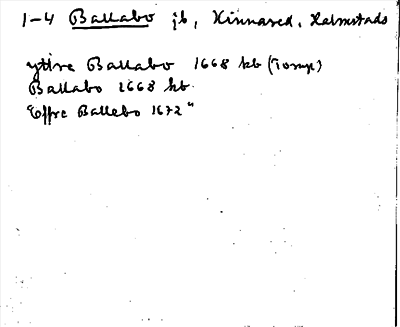 1-4 Ballabo jb, Kinnared, Halmstads
yttre Ballabo 1668 kb (Torup)
Ballabo 1668 kb.
Effre Ballebo 1672 "